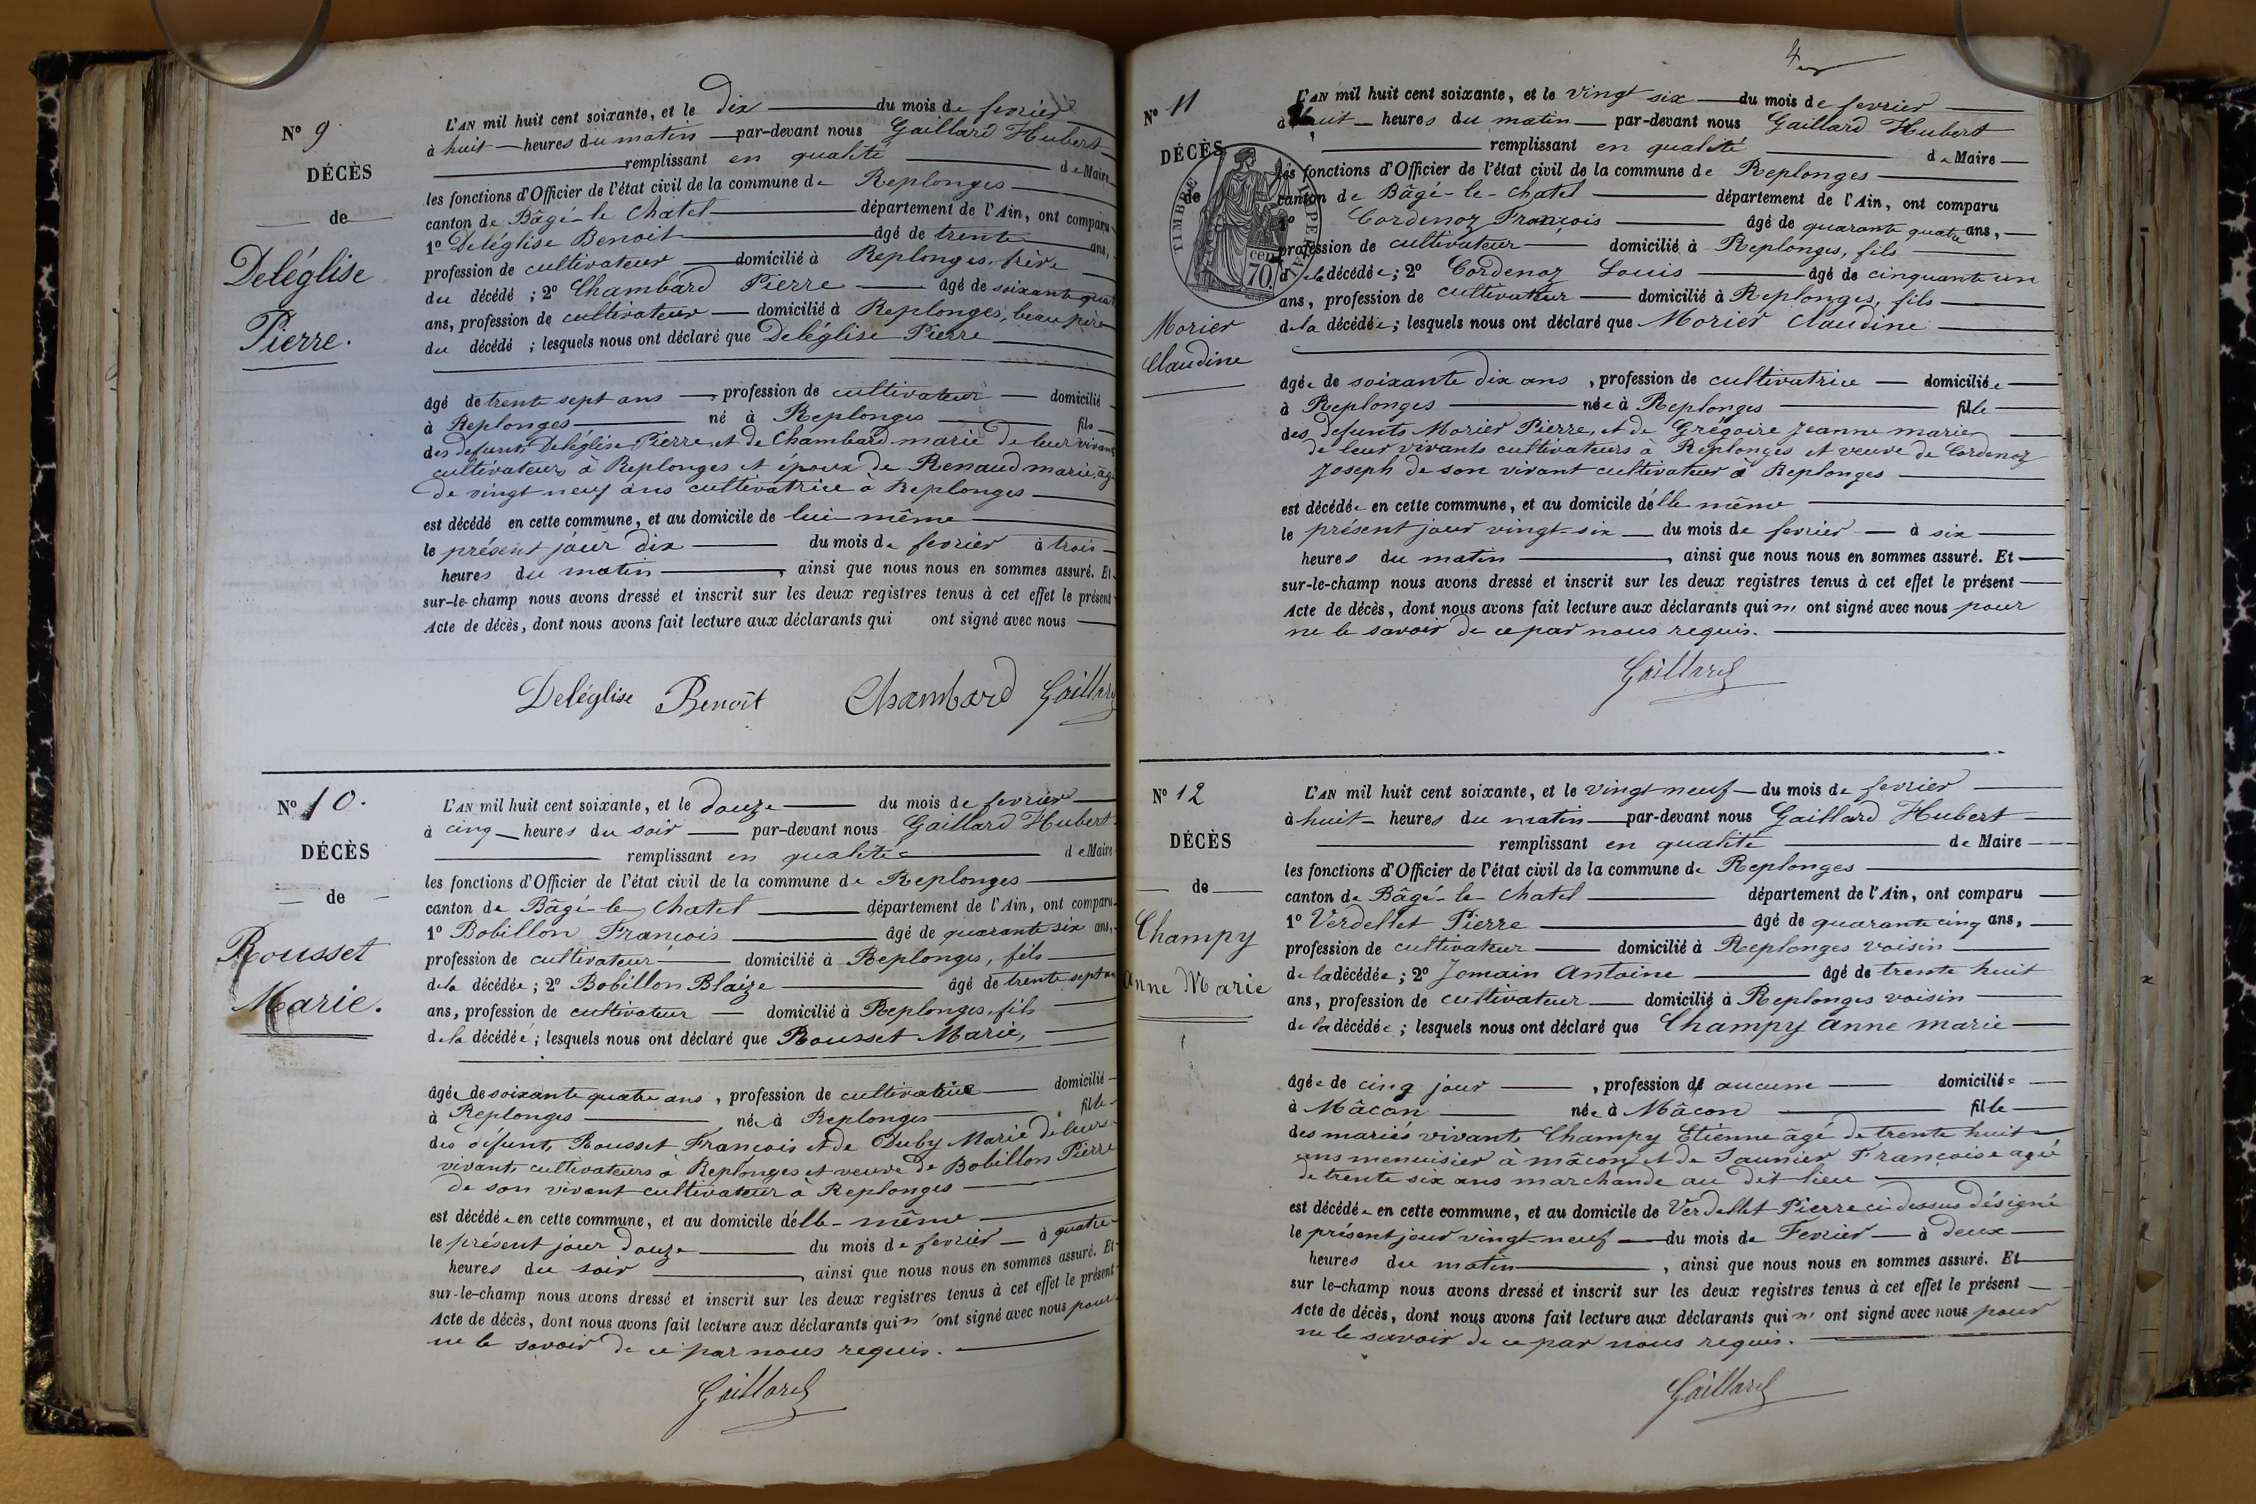 Nº 9
DÉCÈS
de
Deléglise
Pierre.
L'AN mil huit cent soixante, et le dix du mois de fevrier
à huit heures du matin par-devant nous Gaillard Hubert
remplissant en qualité de Maire
les fonctions d'Officier de l'état civil de la commune de Replonges
canton de Bâgé-le Chatel département de l'Ain, ont comparu
1º Deléglise Benoit âgé de trente ans,
profession de cultivateur domicilié à Replonges, frère
du décédé ; 2º Chambard Pierre âgé de soixante quat
ans, profession de cultivateur domicilié à Replonges, beau père
du décédé ; lesquels nous ont déclaré que Deléglise Pierre
âgé de trente sept ans, profession de cultivateur domicilié
à Replonges né à Replonges fils
des defunts Deléglise Pierre et de Chambard marie de leur vivant
cultivateurs à Replonges et époux de Renaud marie, âgé
de vingt neuf ans cultivatrice à Replonges
est décédé en cette commune, et au domicile de lui-même
le présent jour dix du mois de fevrier à trois
heures du matin, ainsi que nous nous en sommes assuré. Et
sur-le-champ nous avons dressé et inscrit sur les deux registres tenus à cet effet le présent
Acte de décès, dont nous avons fait lecture aux déclarants qui ont signé avec nous
Deléglise Benoît Chambard Gaillard
Nº 10.
DÉCÈS
de
Rousset
Marie.
L'AN mil huit cent soixante, et le douze du mois de fevrier
à cinq heures du soir par-devant nous Gaillard Hubert
remplissant en qualité de Maire
les fonctions d'Officier de l'état civil de la commune de Replonges
canton de Bâgé-le Chatel département de l'Ain, ont comparu
1º Bobillon François âgé de quarante six ans,
profession de cultivateur domicilié à Replonges, fils
de la décédée ; 2º Bobillon Blaize âgé de trente sept
ans, profession de cultivateur domicilié à Replonges, fils
de la décédée ; lesquels nous ont déclaré que Rousset Marie,
âgée de soixante quatre ans, profession de cultivatrice domicilié
à Replonges née à Replonges fille
des défunts Rousset François et de Duby Marie de leurs
vivants cultivateurs à Replonges et veuve de Bobillon Pierre
de son vivant cultivateur à Replonges
est décédée en cette commune, et au domicile d'elle-même
le présent jour douze du mois de fevrier à quatre
heures du soir, ainsi que nous nous en sommes assuré. Et
sur-le-champ nous avons dressé et inscrit sur les deux registres tenus à cet effet le présent
Acte de décès, dont nous avons fait lecture aux déclarants qui n'ont signé avec nous pour
ne le savoir de ce par nous requis.
Gaillard
Nº 11
DÉCÈS
de
TIMBRE IMPE
cen
70.
Morier
Claudine
L'AN mil huit cent soixante, et le vingt six du mois de fevrier
à huit heures du matin par-devant nous Gaillard Hubert
remplissant en qualité de Maire
les fonctions d'Officier de l'état civil de la commune de Replonges
canton de Bâgé-le-Chatel département de l'Ain, ont comparu
1º Cordenoz François âgé de quarante quatre ans,
profession de cultivateur domicilié à Replonges, fils
de la décédée ; 2º Cordenoz Louis âgé de cinquante un
ans, profession de cultivateur domicilié à Replonges, fils
de la décédée ; lesquels nous ont déclaré que Morier Claudine
âgée de soixante dix ans, profession de cultivatrice domiciliée
à Replonges née à Replonges fille
des defunts Morier Pierre, et de Grégoire Jeanne marie
de leur vivants cultivateurs à Replonges et veuve de Cordenoz
Joseph de son vivant cultivateur à Replonges
est décédée en cette commune, et au domicile d'elle même
le présent jour vingt-six du mois de fevrier à six
heures du matin, ainsi que nous nous en sommes assuré. Et
sur-le-champ nous avons dressé et inscrit sur les deux registres tenus à cet effet le présent
Acte de décès, dont nous avons fait lecture aux déclarants qui n'ont signé avec nous pour
ne le savoir de ce par nous requis.
Gaillard
Nº 12
DÉCÈS
de
Champy
Anne Marie
L'AN mil huit cent soixante, et le vingt neuf du mois de fevrier
à huit heures du matin par-devant nous Gaillard Hubert
remplissant en qualité de Maire
les fonctions d'Officier de l'état civil de la commune de Replonges
canton de Bâgé-le-Chatel département de l'Ain, ont comparu
1º Verdellet Pierre âgé de quarante cinq ans,
profession de cultivateur domicilié à Replonges voisin
de la décédée ; 2º Jomain Antoine âgé de trente huit
ans, profession de cultivateur domicilié à Replonges voisin
de la décédée ; lesquels nous ont déclaré que Champy Anne marie
âgée de cinq jour, profession de aucune domiciliée
à Mâcon née à Mâcon fille
des mariés vivants Champy Etienne âgé de trente huit
ans menuisier à mâcon, et de Saunier Françoise agée
de trente six ans marchande au dit lieu
est décédée en cette commune, et au domicile de Verdellet Pierre ci dessus désigné
le présent jour vingt-neuf du mois de Fevrier à deux
heures du matin, ainsi que nous nous en sommes assuré. Et
sur le-champ nous avons dressé et inscrit sur les deux registres tenus à cet effet le présent
Acte de décès, dont nous avons fait lecture aux déclarants qui n'ont signé avec nous pour
ne le savoir de ce par nous requis.
Gaillard